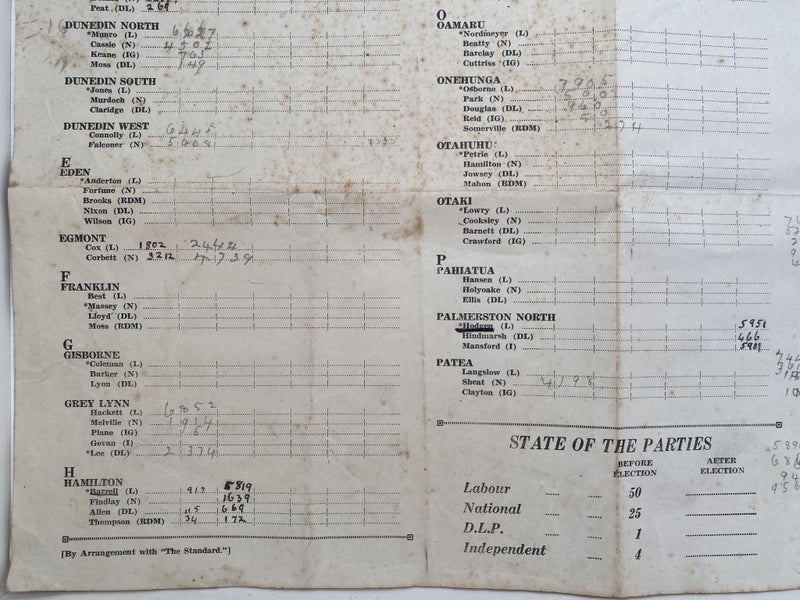 Peat (DL) 269
DUNEDIN NORTH
*Munro (L)
Cassie (N)
Keane (IG) 763
Moss (DL) 149
DUNEDIN SOUTH
*Jones (L)
Murdoch (N)
Claridge (DL)
DUNEDIN WEST
Connolly (L)
Falconer (N)
E
EDEN
*Anderton (L)
Fortune (N)
Brooks (RDM)
Nixon (DL)
Wilson (IG)
EGMONT
Cox (L) 1802 2444
Corbett (N) 3212 4739
F
FRANKLIN
Best (L)
*Massey (N)
Lloyd (DL)
Moss (RDM)
G
GISBORNE
*Coleman (L)
Barker (N)
Lyon (DL)
GREY LYNN
Hackett (L) 6852
Melville (N)
Plane (IG)
Govan (I)
*Lee (DL) 2374
H
HAMILTON
*Barrell (L) 917 5819
Findlay (N) 1639
Allen (DL) 115 669
Thompson (RDM) 34 172
[By Arrangement with "The Standard."]
O
OAMARU
*Nordmeyer (L)
Beatty (N)
Barclay (DL)
Cuttriss (IG)
ONEHUNGA
*Osborne (L)
Park (N)
Douglas (DL)
Reid (IG)
Somerville (RDM) 274
OTAHUHU
*Petrie (L)
Hamilton (N)
Jowsey (DL)
Mahon (RDM)
OTAKI
*Lowry (L)
Cooksley (N)
Barnett (DL)
Crawford (IG)
P
PAHIATUA
Hansen (L)
Holyoake (N)
Ellis (DL)
PALMERSTON NORTH
*Hodgen (L) 5951
Hindmarsh (DL) 466
Mansford (I)
PATEA
Langslow (L)
Sheat (N) 4198
Clayton (IG)
STATE OF THE PARTIES
BEFORE ELECTION AFTER ELECTION
Labour 50
National 25
D.L.P. 1
Independent 4